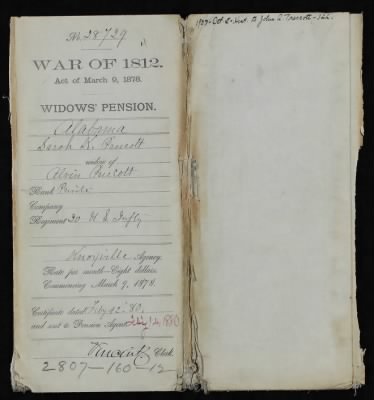 No. 28729
WAR OF 1812.
Act of March 9, 1878.
WIDOWS' PENSION.
Alabama
Sarah R. Prescott
widow of
Alvin Prescott
Rank Private
Company
Regiment 30 U S Infty
Knoxville Agency.
Rate per month—Eight dollars,
Commencing March 9, 1878.
Certificate dated Feby 12 '80.
and sent to Pension Agent Feby 14, 1880
Vincent, Clerk.
2807—160—12
1927-Oct 5-Hist. to John A.